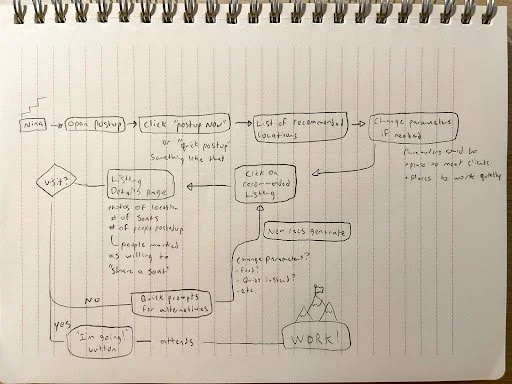 Nina
Open Postup
Click "Postup Now"
or "Quick postup"
Something like that
List of recommended
locations
Change parameters
if needed
Parameters could be
• place to meet clients
• places to work quietly
Click on
recommended
Listing
Listing
Details page
photos of location
# of seats
# of people postedup
people marked
as willing to
"share a seat"
visit?
New recs generate
Change parameters?
- food?
- Quiet instead?
- etc.
NO
Quick prompts
for alternatives
YES
"I'm going!"
button
attends
WORK!